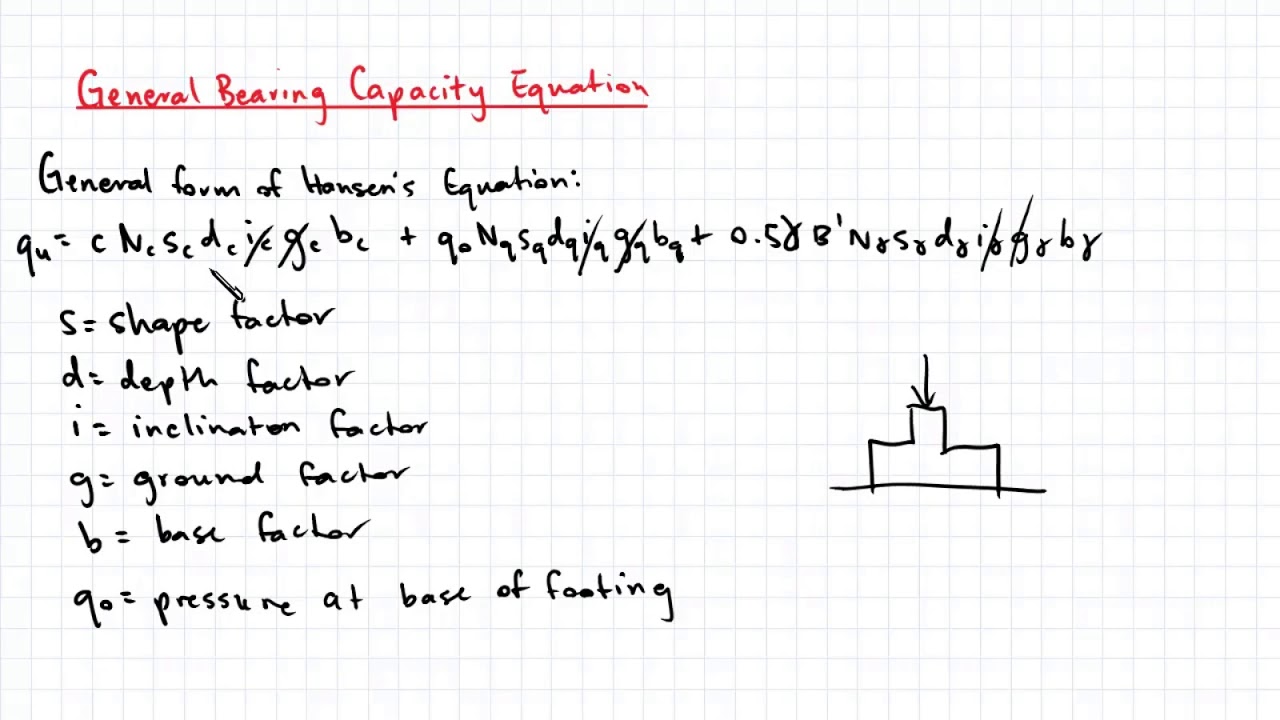 General Bearing Capacity Equation
General form of Hansen's Equation:
qu = c Nc sc dc ic gc bc + q0 Nq sq dq iq gq bq + 0.5γ B' Nγ sγ dγ iγ gγ bγ
s = shape factor
d = depth factor
i = inclinaton factor
g = ground factor
b = base factor
q0 = pressure at base of footing